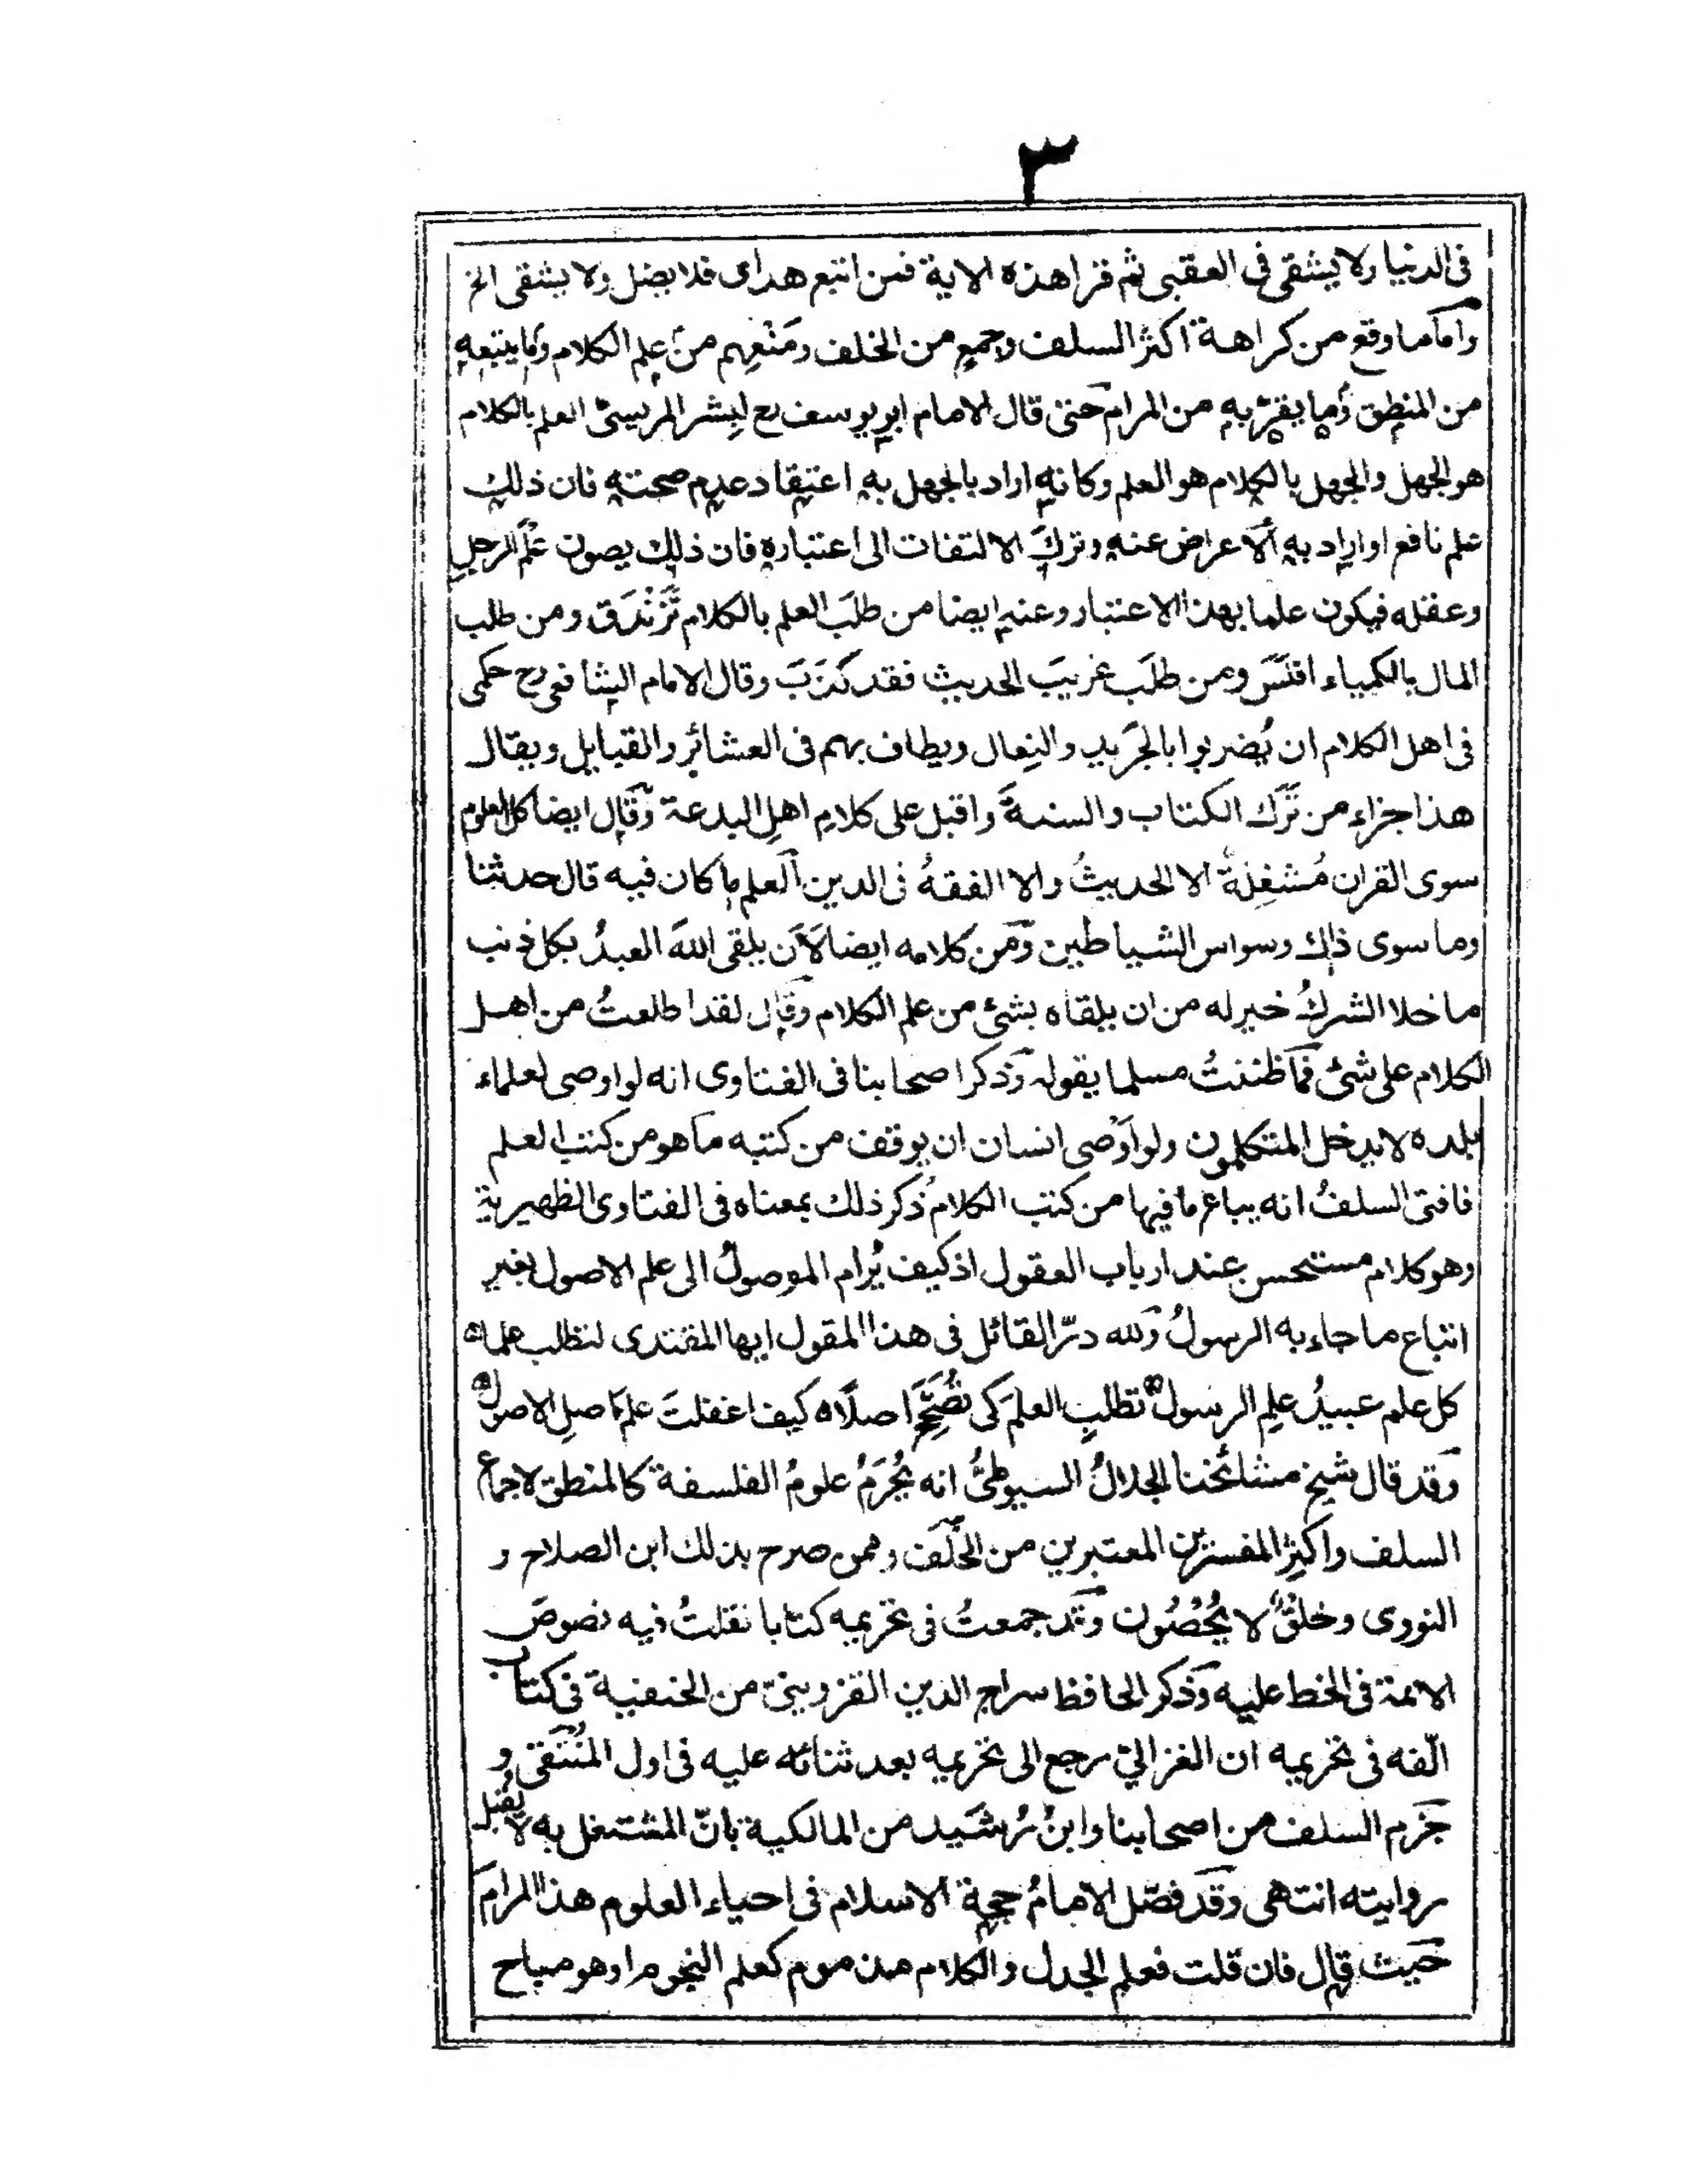 ٣
فى الدنيا ولا يشقى فى العقبى ثم قرا هذه الاية فمن اتبع هداى فلا يضل ولا يشقى الخ
وآما ما وقع من كراهة اكثر السلف وجمع من الخلف ومَنْعِهم من علم الكلام وما يتبعه
من المنطق وما يقرّبه من المرام حتى قال الامام ابو يوسف رح لبِشر المريسىّ العلم بالكلام
هو الجهل والجهل بالكلام هو العلم وكانه اراد بالجهل به اعتقاد عدم صحته فان ذلك
علم نافع او اراد به الاعراض عنه وتركَ الالتفات الى اعتباره فان ذلك يصون علم الرجل
وعقله فيكون علما بهذا الاعتبار وعنه ايضا من طلَب العلم بالكلام تَزَنْدَق ومن طلب
المال بالكمياء افلَسَ ومن طلَب غريبَ الحديث فقد كذَبَ وقال الامام الشافعى رح حكمى
فى اهل الكلام ان يُضربوا بالجَريد والنِعال ويطاف بهم فى العشائر والقبايل ويقال
هذا جزاء من ترَك الكتاب والسنةَ واقبل على كلامِ اهلِ البدعة وقال ايضا كل العلوم
سوى القران مُشغِلة الا الحديثُ والا الفقهُ فى الدين العلم ما كان فيه قال حدثنا
وما سوى ذاك وسواس الشياطين ومن كلامه ايضا لَاَن يلقى اللهَ العبدُ بكل ذنب
ما خلا الشركُ خير له من ان يلقاه بشئ من علم الكلام وقال لقد اطلعتُ من اهل
الكلام على شئ فما ظننتُ مسلما يقوله وذكر اصحابنا فى الفتاوى انه لو اوصى لعلماء
بلده لا يدخل المتكلمون ولو اَوْصى انسان ان يوقف من كتبه ما هو من كتب العلم
فافتى السلفُ انه يباع ما فيها من كتب الكلام ذُكر ذلك بمعناه فى الفتاوى الظهيرية
وهو كلام مستحسن عند ارباب العقول اذ كيف يُرام الموصولُ الى علم الاصول بغير
اتباع ما جاء به الرسولُ ولله درّ القائل فى هذا المقول ايها المقتدى لتطلب علماه
كل علم عبيدُ علمِ الرسول تطلبِ العلمَ كى تُصَحِّحَ اصلًا كيف اغفلتَ علمَ اصلِ الاصول
وقد قال شيخ مشائخنا الجلالُ السيوطىُّ انه يُحرَمُ علومُ الفلسفة كالمنطق لاجماع
السلف واكثرِ المفسرين المعتبرين من الخَلَف وممن صرح بذلك ابن الصلاح و
النووى وخلقٌ لا يُحْصَون وقد جمعتُ فى تحريمه كتابا نقلتُ فيه نصوصَ
الائمة فى الحط عليه وذكر الحافظ سراج الدين القزوينىّ من الحنفية فى كتاب
الّفه فى تحريمه ان الغزالىّ رجع الى تحريمه بعد ثنائه عليه فى اول المُنْتَقى و
جزم السلف من اصحابنا وابنُ رُشَيد من المالكية بانّ المشتغل به لا يُقبل
روايته انتهى وقد فصّل الامامُ حجة الاسلام فى احياء العلوم هذا المرامَ
حيث قال فان قلت فعلم الجدل والكلام مذموم كعلم النجوم او هو مباح